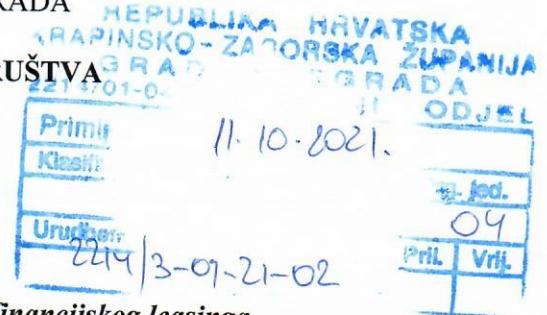 RADA
RUŠTVA
REPUBLIKA HRVATSKA
KRAPINSKO-ZAGORSKA ŽUPANIJA
GRAD
GRADA
ODJEL
Primlj
11.10.2021.
Klasifi
jed.
04
Urudžben
Pril. Vrij.
2214/3-01-21-02
financijskog leasinga